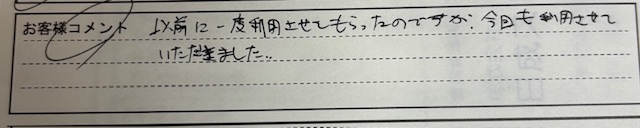 お客様コメント 以前に一度利用させてもらったのですが、今回も利用させて
いただきました。